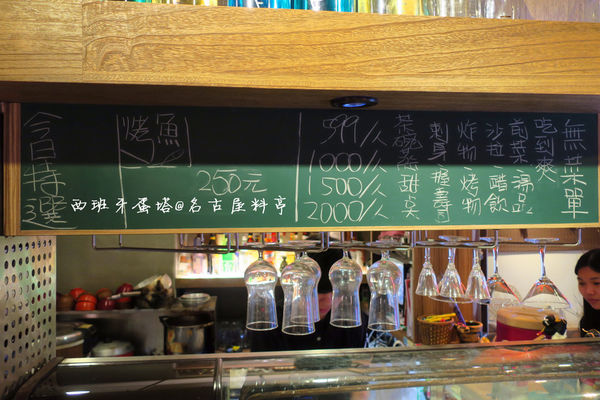 無菜單
吃到爽
前菜 湯品
沙拉 醋飲
炸物 烤物
刺身 握壽司
茶碗蒸 甜奌
599/人
1000/人
1500/人
2000/人
烤魚
250元
今日特選
西班牙蛋塔@名古屋料亭